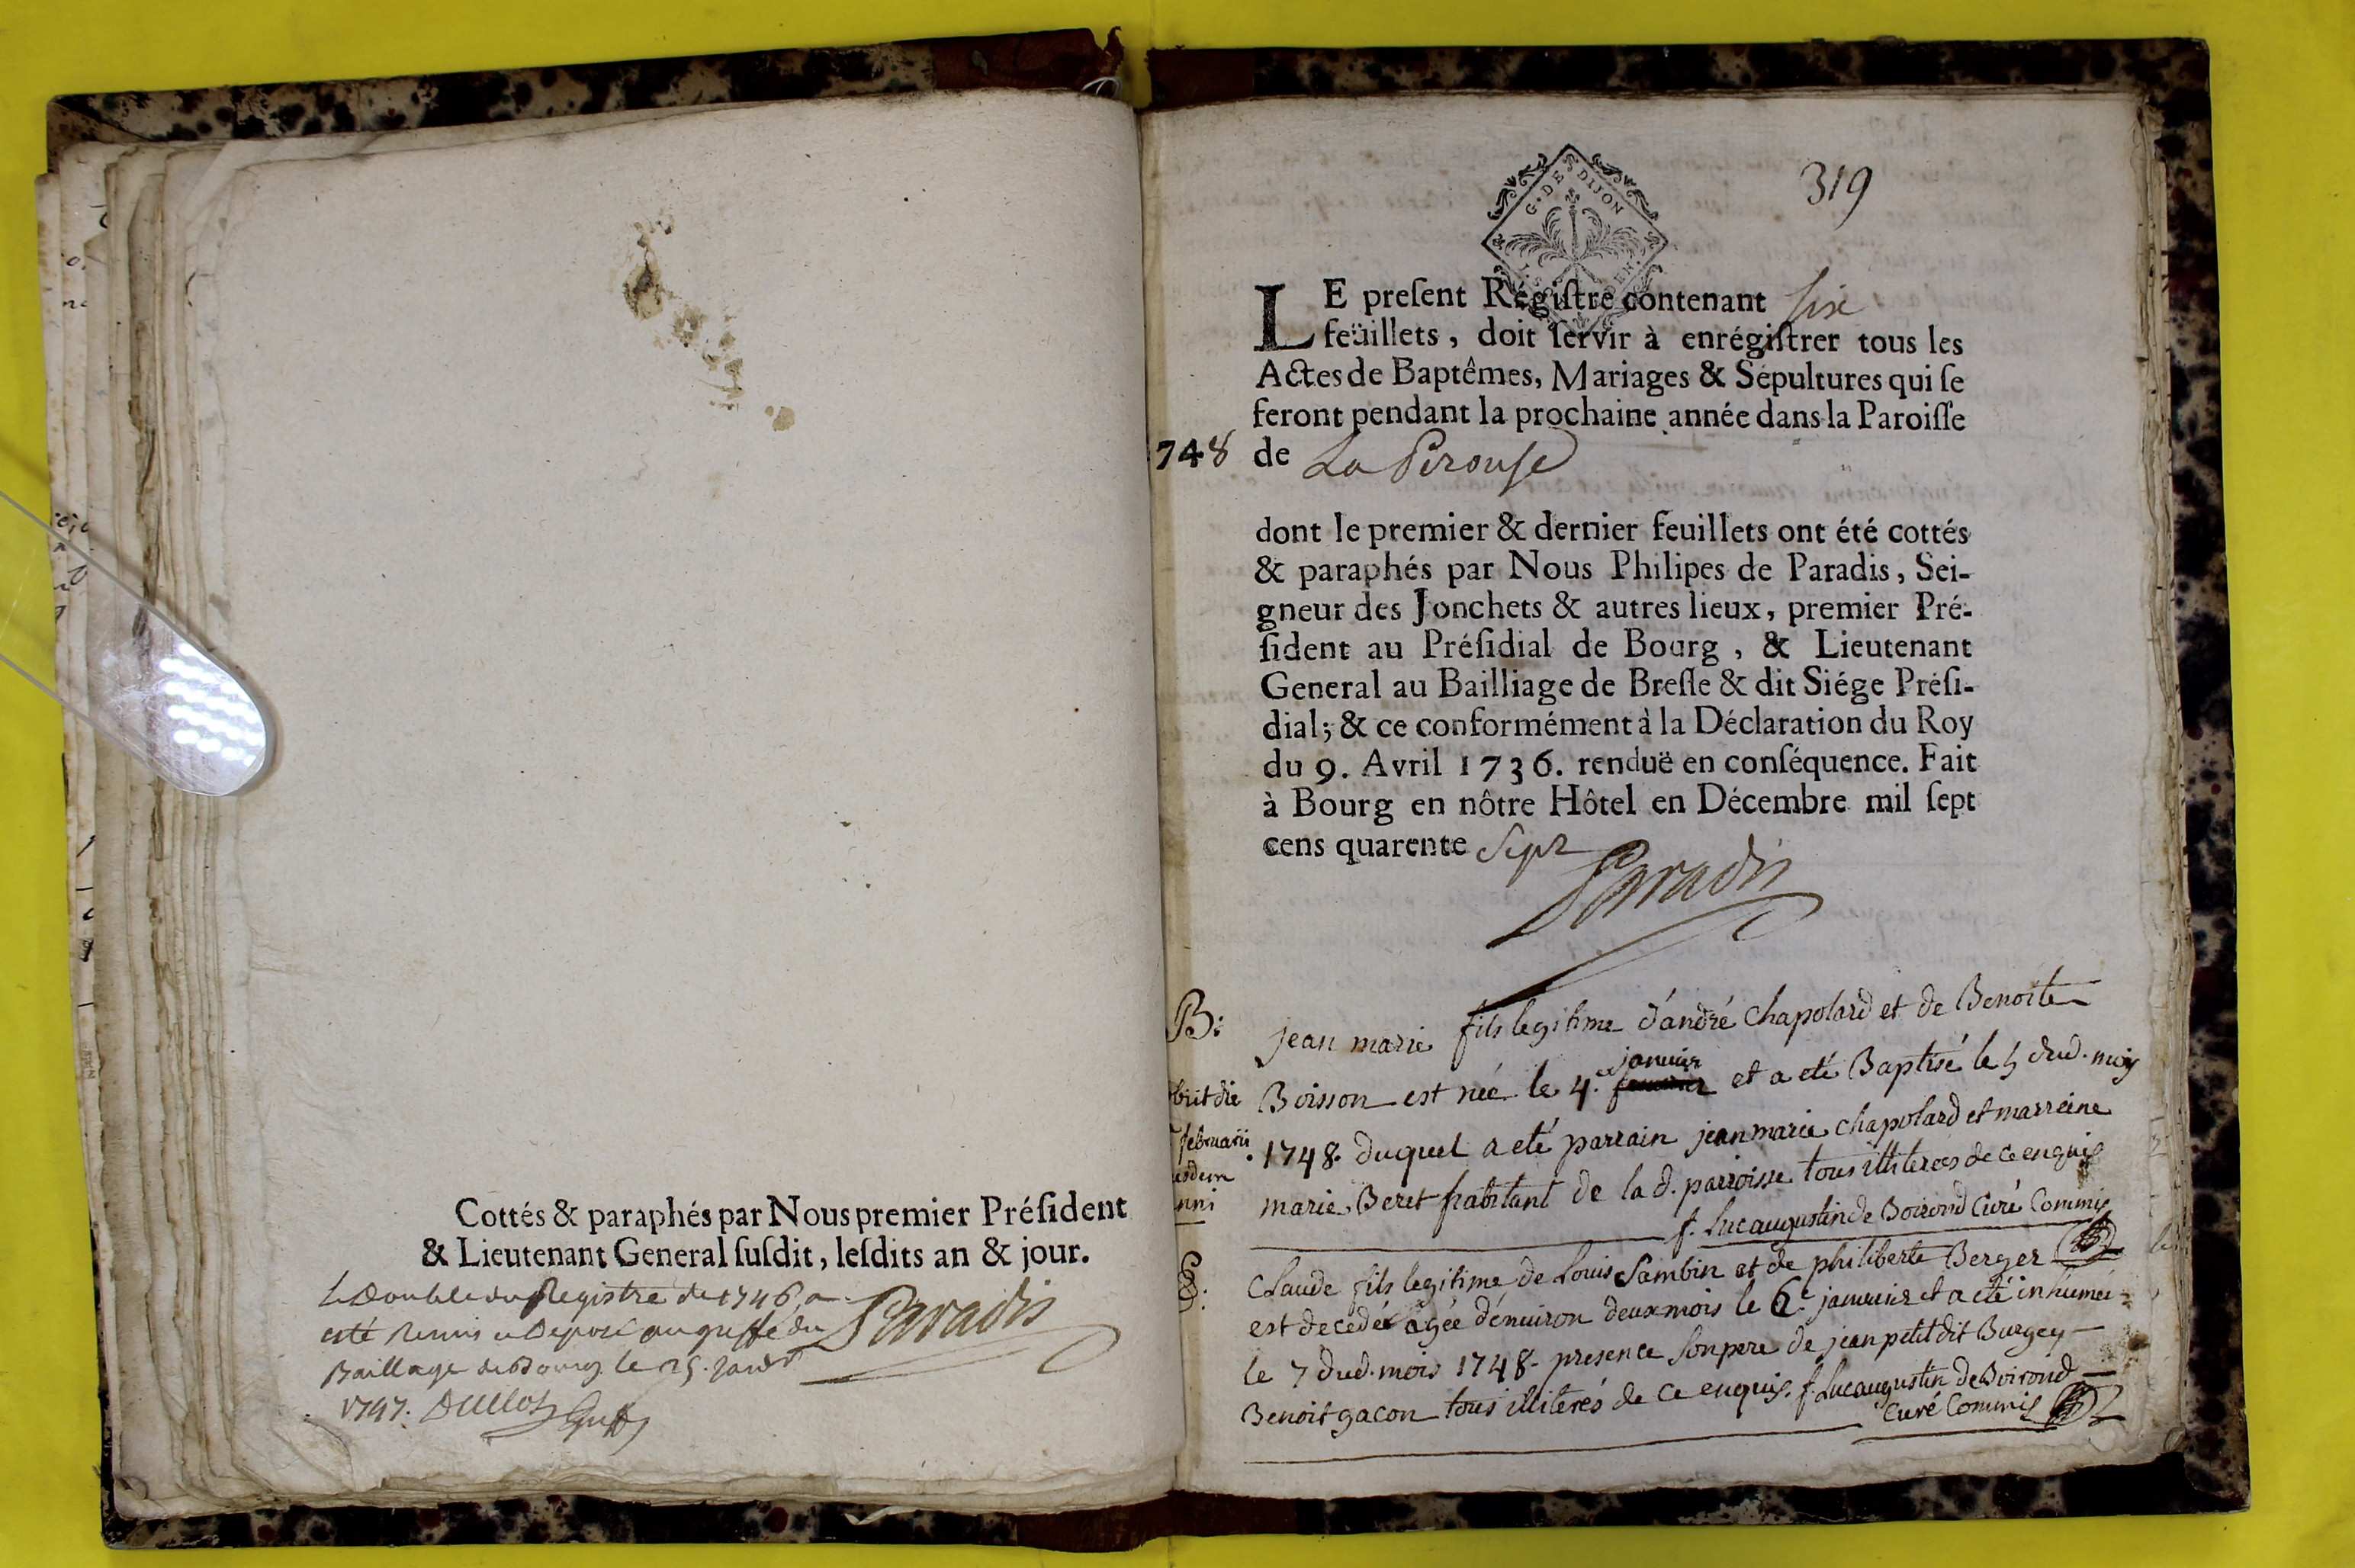 Cottés & paraphés par Nous premier Préſident
& Lieutenant General ſuſdit, leſdits an & jour.
Le Double du Registre de 1746 a
esté Remis et Deposé au greffe du
Baillage de Bourg le 25. Janvr
1747.
Paradis
G. DES DIJON
319
LE preſent Régiſtre contenant six
feüillets, doit ſervir à enrégiſtrer tous les
Actes de Baptêmes, Mariages & Sépultures qui ſe
feront pendant la prochaine année dans la Paroiſſe
748 de La Perouse
dont le premier & dernier feuillets ont été cottés
& paraphés par Nous Philipes de Paradis, Sei-
gneur des Jonchets & autres lieux, premier Pré-
ſident au Préſidial de Bourg, & Lieutenant
General au Bailliage de Breſſe & dit Siége Préſi-
dial; & ce conformément à la Déclaration du Roy
du 9. Avril 1736. renduë en conſéquence. Fait
à Bourg en nôtre Hôtel en Décembre mil ſept
cens quarente Sept
Paradis
B:
jean marie fils legitime d'andré Chapolard et de Benoite
Boisson est née le 4.e janvier et a eté Baptisé le 5 dud. mois
1748. duquel a eté parrain jean marie chapolard et marreine
marie Beret habitant de la d. parroisse tous illiterés de ce enquis
f. Luc augustin de Boirond Curé Commis
obiit die
februarii
eiusdem
anni
S:
Claude fils legitime de Louis Sambin et de philiberte Berger
est decedé agée d'enuiron deux mois le 6.e januier et a eté inhumé
le 7 dud. mois 1748. presence son pere de jean petit dit Burgey
Benoit gacon tous illiterés de ce enquis. f. Luc augustin de Boirond
Curé Commis